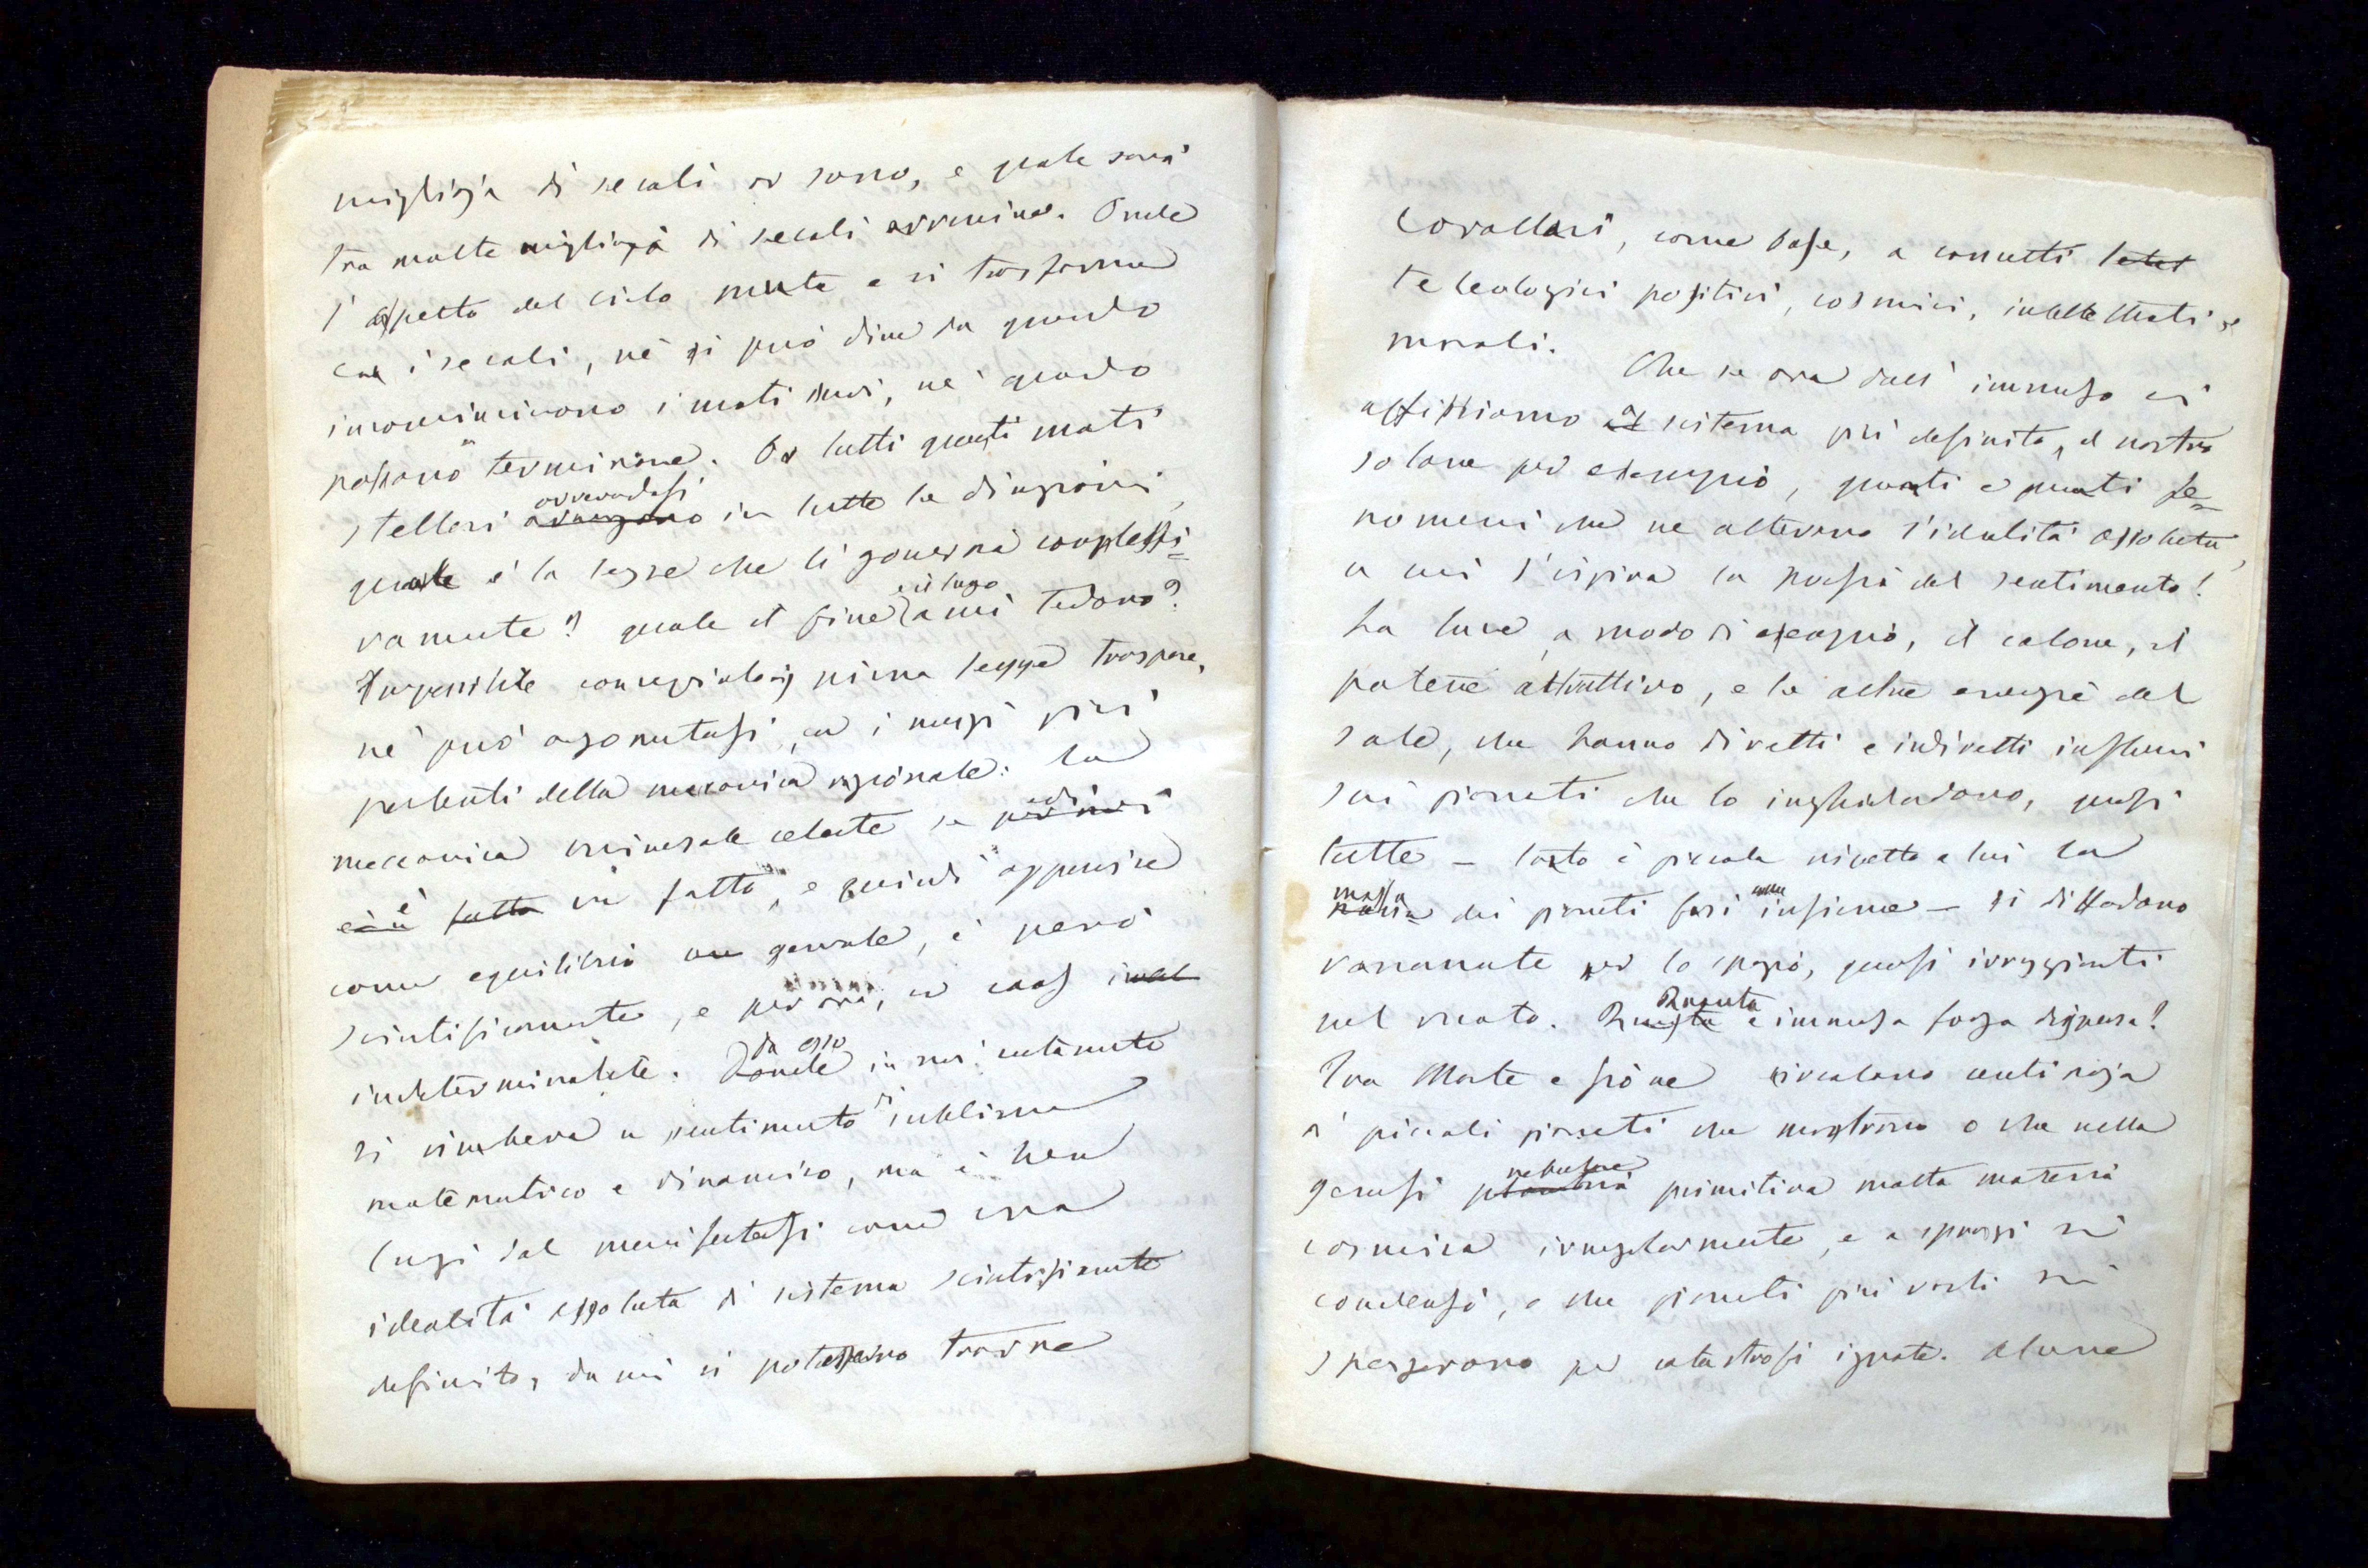 migliaja di secoli or sono, e quale sarà
tra molte migliaja di secoli avvenire. Onde
l'aspetto del cielo muta e si trasforma
con i secoli, nè si può dire da quando
incominciarono i moti suoi, nè quando
possano terminare. Or tutti questi moti
stellari avverandosi in tutte le direzioni,
quale è la legge che li governa complessi=
vamente? quale il fine e il luogo a cui tendono?
Impossibile niuna legge traspare,
nè può argomentarsi, con i mezzi più
potenti della meccanica razionale: la
meccanica universale celeste
è un fatto, e quindi apparisce
come equilibrio generale, è però
scientificamente, e per ora, un caos
indeterminabile. Da esso in noi certamente
si un sentimento di sublime
matematico e dinamico, ma è ben
lungi dal manifestarsi come una
idealità assoluta di sistema scientificamente
definito, da cui si potessero trarre
corollari, come base, a concetti
teleologici positivi, cosmici, intellettuali e
morali.
Che se ora dall'immenso ci
affissiamo a sistema più definito, il nostro
solare per esempio, quanti e quanti fe=
nomeni che ne alterano l'idealità assoluta,
a cui s'ispira la poesia del sentimento!
La luce, a modo di esempio, il calore, il
potere attrattivo, e le altre energie del
sole, che hanno diretti e indiretti influssi
sui pianeti che lo inghirlandano, quasi
tutte — tanto è piccola rispetto a lui la
massa dei pianeti fusi insieme — si diffondono
vanamente per lo spazio, quasi irraggianti
nel vuoto. Quanta è immensa forza dispersa!
Tra Marte e Giove circolano centinaja
di piccoli pianeti che mostrano o che nella
genesi nebulare primitiva molta materia
cosmica irregolarmente, e a sprazzi si
condensò, o che pianeti più vasti si
spersero per catastrofi ignote. Alcune